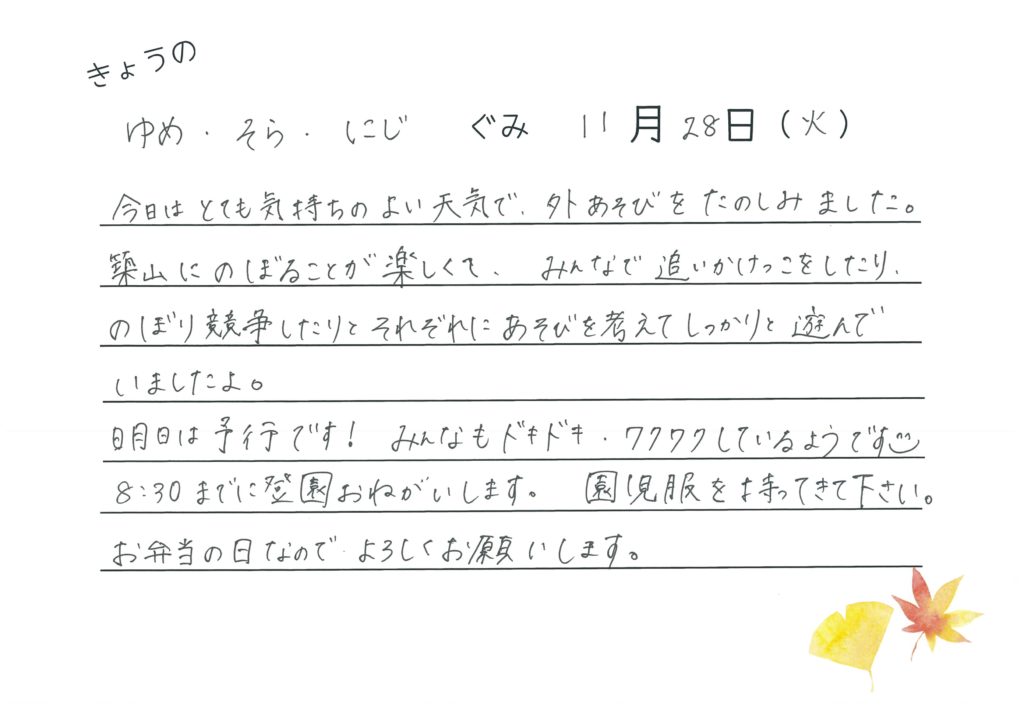 きょうの
ゆめ・そら・にじ ぐみ 11月28日(火)
今日はとても気持ちのよい天気で、外あそびをたのしみました。
築山にのぼることが楽しくて、 みんなで追いかけっこをしたり、
のぼり競争したりとそれぞれにあそびを考えてしっかりと遊んで
いましたよ。
明日は予行です! みんなもドキドキ・ワクワクしているようです
8:30までに登園おねがいします。 園児服を持ってきて下さい。
お弁当の日なので よろしくお願いします。